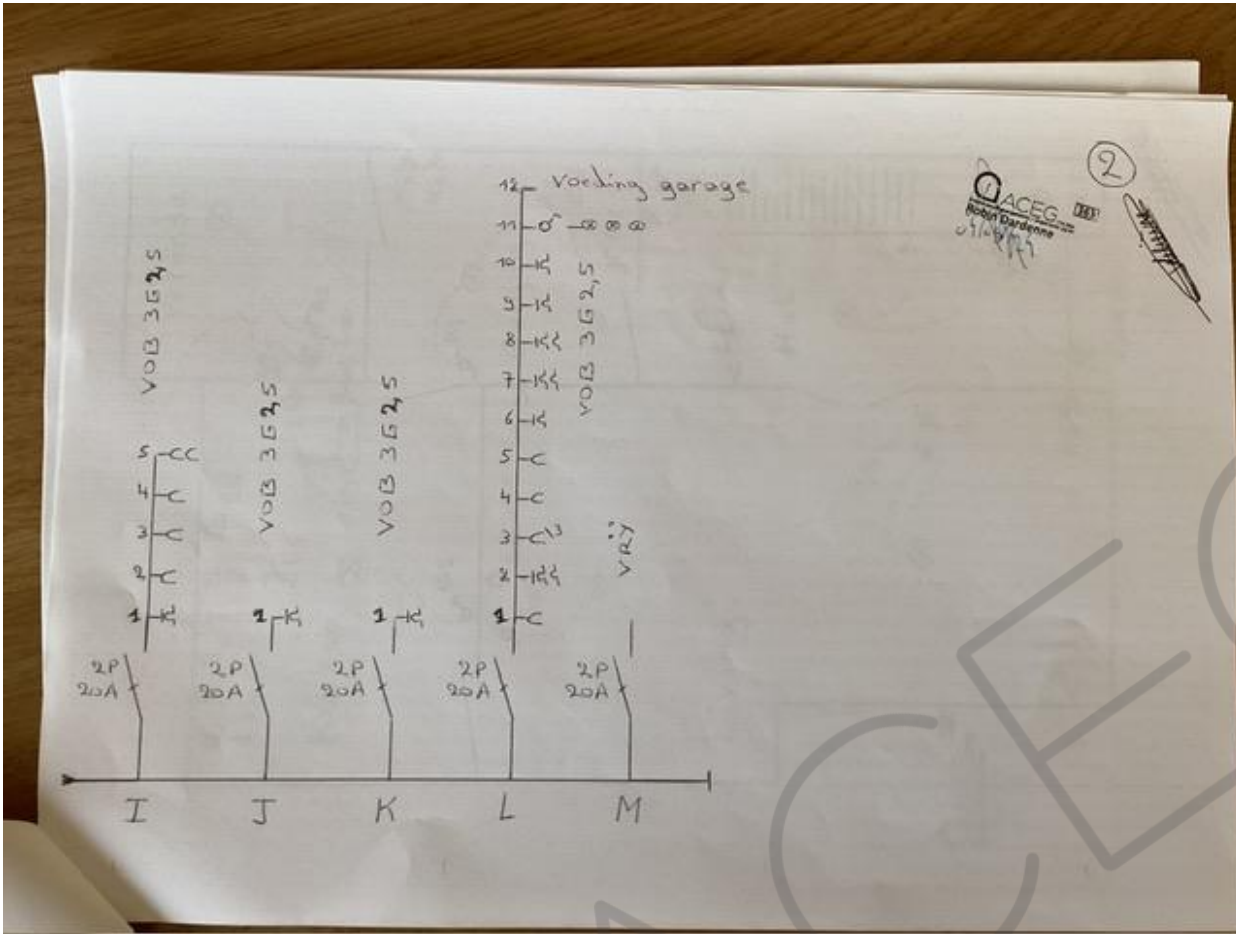 2
ACEG
Robin Dardenne
12 Voeding garage
11
10
9
8
7
6
5
4
3 \3
2
1
VOB 3G2,5
VOB 3G2,5
5
4
3
2
1
VOB 3G2,5
1
VOB 3G2,5
1
VRÿ
2P
20A
2P
20A
2P
20A
2P
20A
2P
20A
I J K L M
ACEG